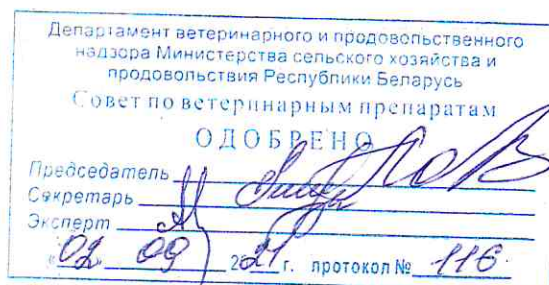 Департамент ветеринарного и продовольственного
надзора Министерства сельского хозяйства и
продовольствия Республики Беларусь
Совет по ветеринарным препаратам
ОДОБРЕНО
Председатель
Секретарь
Эксперт
«02 09 2021 г. протокол № 116